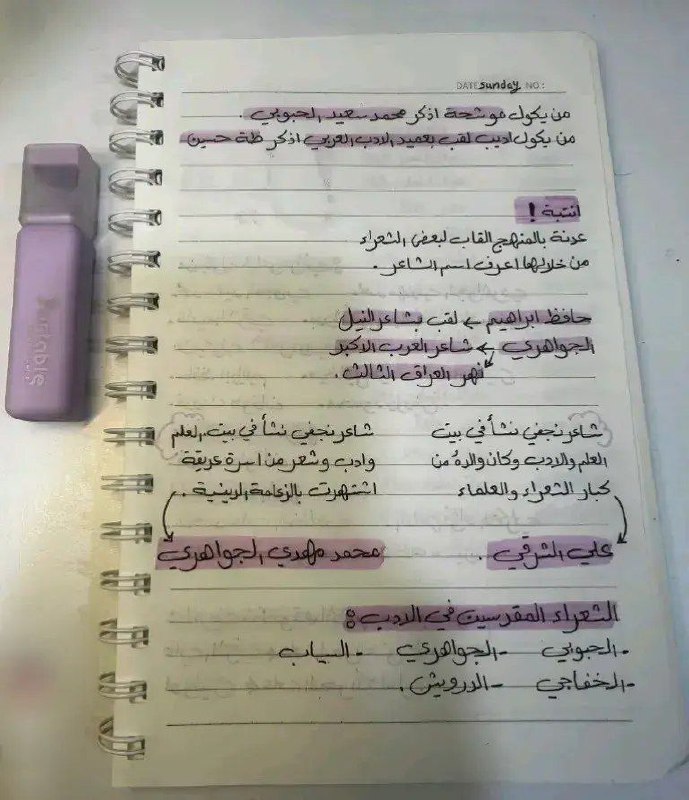 DATE: sunday NO:
من يكول موشحة اذكر محمد سعيد الحبوبي.
من يكول اديب لقب بعميد الادب العربي اذكر طة حسين
انتبة !
عدنة بالمنهج القاب لبعض الشعراء
من خلالها اعرف اسم الشاعر .
حافظ ابراهيم ← لقب بشاعر النيل
الجواهري ← شاعر العرب الاكبر
نهر العراق الثالث.
شاعر نجفي نشأ في بيت
العلم والادب وكان والدهُ من
كبار الشعراء والعلماء
علي الشرقي .
شاعر نجفي نشأ في بيت العلم
وادب وشعر من اسرة عريقة
اشتهرت بالزعامة الدينية .
محمد مهدي الجواهري
الشعراء المقدسين في الادب :
-الحبوبي -الجواهري -السياب
-الخفاجي -الدرويش .